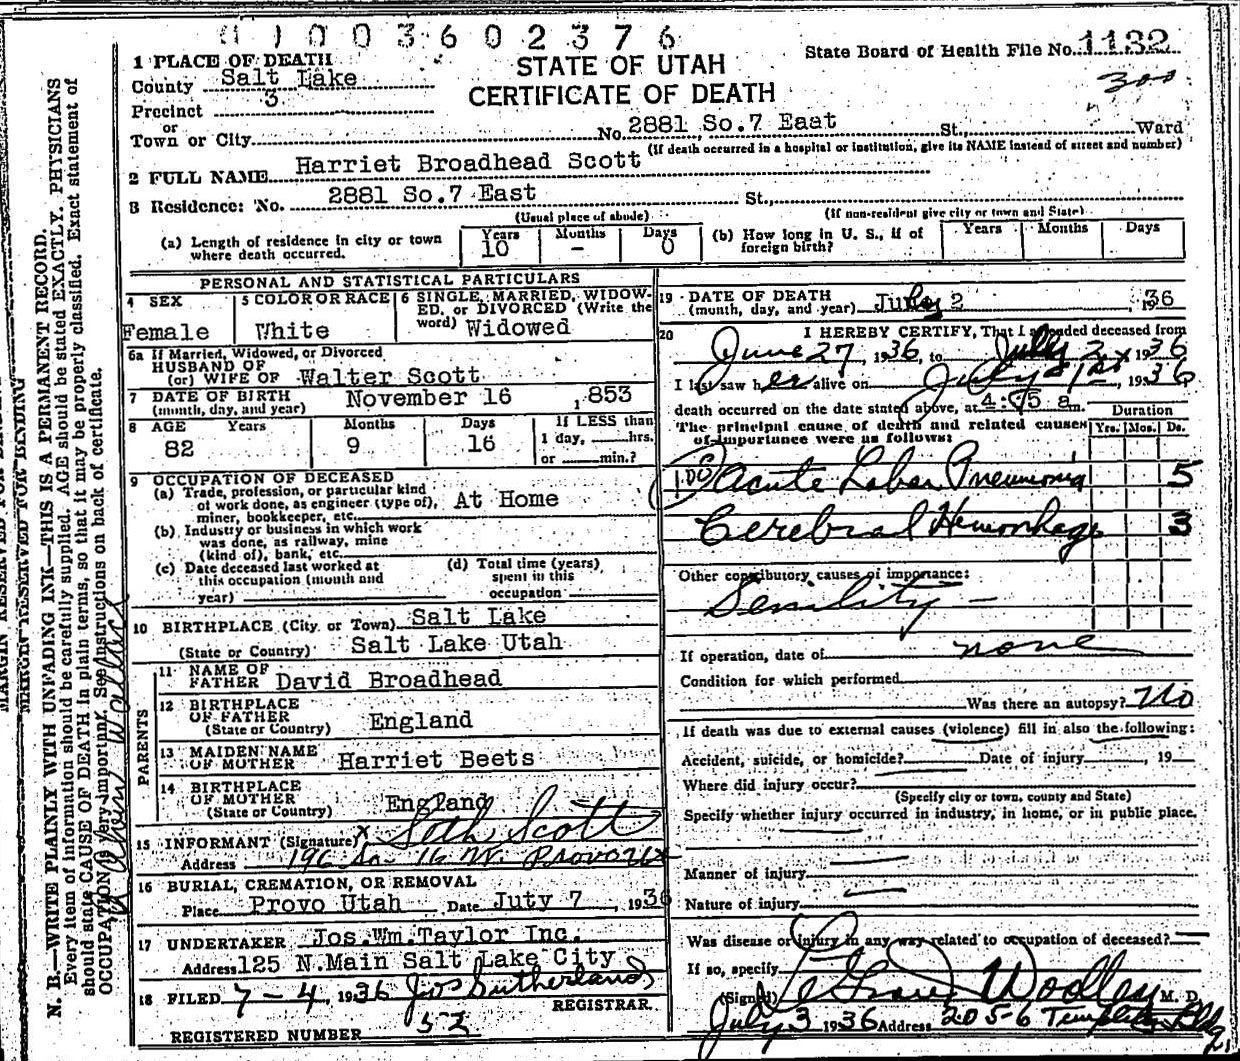 1003602376
State Board of Health File No. 1132
300
STATE OF UTAH
CERTIFICATE OF DEATH
1 PLACE OF DEATH
County Salt Lake
Precinct 3
or
Town or City No. 2881 So.7 East St., Ward
(If death occurred in a hospital or institution, give its NAME instead of street and number)
2 FULL NAME Harriet Broadhead Scott
3 Residence: No. 2881 So.7 East St.,
(Usual place of abode) (If non-resident give city or town and State)
(a) Length of residence in city or town where death occurred. Years 10 Months - Days 0 (b) How long in U. S., if of foreign birth? Years Months Days
PERSONAL AND STATISTICAL PARTICULARS
4 SEX 5 COLOR OR RACE 6 SINGLE, MARRIED, WIDOW-
ED, or DIVORCED (Write the
word) Widowed
Female White
6a If Married, Widowed, or Divorced
HUSBAND OF
(or) WIFE OF Walter Scott
7 DATE OF BIRTH
(month, day, and year) November 16 1853
8 AGE Years Months Days If LESS than
82 9 16 1 day, hrs.
or min.?
9 OCCUPATION OF DECEASED
(a) Trade, profession, or particular kind
of work done, as engineer (type of),
miner, bookkeeper, etc. At Home
(b) Industry or business in which work
was done, as railway, mine
(kind of), bank, etc.
(c) Date deceased last worked at
this occupation (month and
year)
(d) Total time (years)
spent in this
occupation
10 BIRTHPLACE (City or Town) Salt Lake
(State or Country) Salt Lake Utah
PARENTS
11 NAME OF
FATHER David Broadhead
12 BIRTHPLACE
OF FATHER
(State or Country) England
13 MAIDEN NAME
OF MOTHER Harriet Beets
14 BIRTHPLACE
OF MOTHER
(State or Country) England
15 INFORMANT (Signature) x Seth Scott
Address 196 So - 16 W. Provo Ut
16 BURIAL, CREMATION, OR REMOVAL
Place Provo Utah Date Juty 7, 1936
17 UNDERTAKER Jos.Wm.Taylor Inc.
Address 125 N.Main Salt Lake City
18 FILED 7-4, 1936 Jos Sutherland
REGISTRAR.
REGISTERED NUMBER 52
19 DATE OF DEATH
(month, day, and year) July 2, 1936
20 I HEREBY CERTIFY, That I attended deceased from
June 27, 1936, to July 2, 1936
I last saw her alive on July 1st, 1936
death occurred on the date stated above, at 4:15 a m.
The principal cause of death and related causes
of importance were as follows:
Duration
Yrs. Mos. Ds.
Acute Lobar Pneumonia 5
Cerebral Hemorrhage 3
Other contributory causes of importance:
Senility -
If operation, date of none
Condition for which performed
Was there an autopsy? No
If death was due to external causes (violence) fill in also the following:
Accident, suicide, or homicide? Date of injury, 19
Where did injury occur?
(Specify city or town, county and State)
Specify whether injury occurred in industry, in home, or in public place.
Manner of injury
Nature of injury
Was disease or injury in any way related to occupation of deceased?
If so, specify
(Signed) Woolley M. D.
July 3 1936 Address 205-6 Templeton Bldg
MARGIN RESERVED FOR BINDING
N. B.—WRITE PLAINLY WITH UNFADING INK—THIS IS A PERMANENT RECORD.
Every item of information should be carefully supplied. AGE should be stated EXACTLY. PHYSICIANS
should state CAUSE OF DEATH in plain terms, so that it may be properly classified. Exact statement of
OCCUPATION is very important. See instructions on back of certificate.